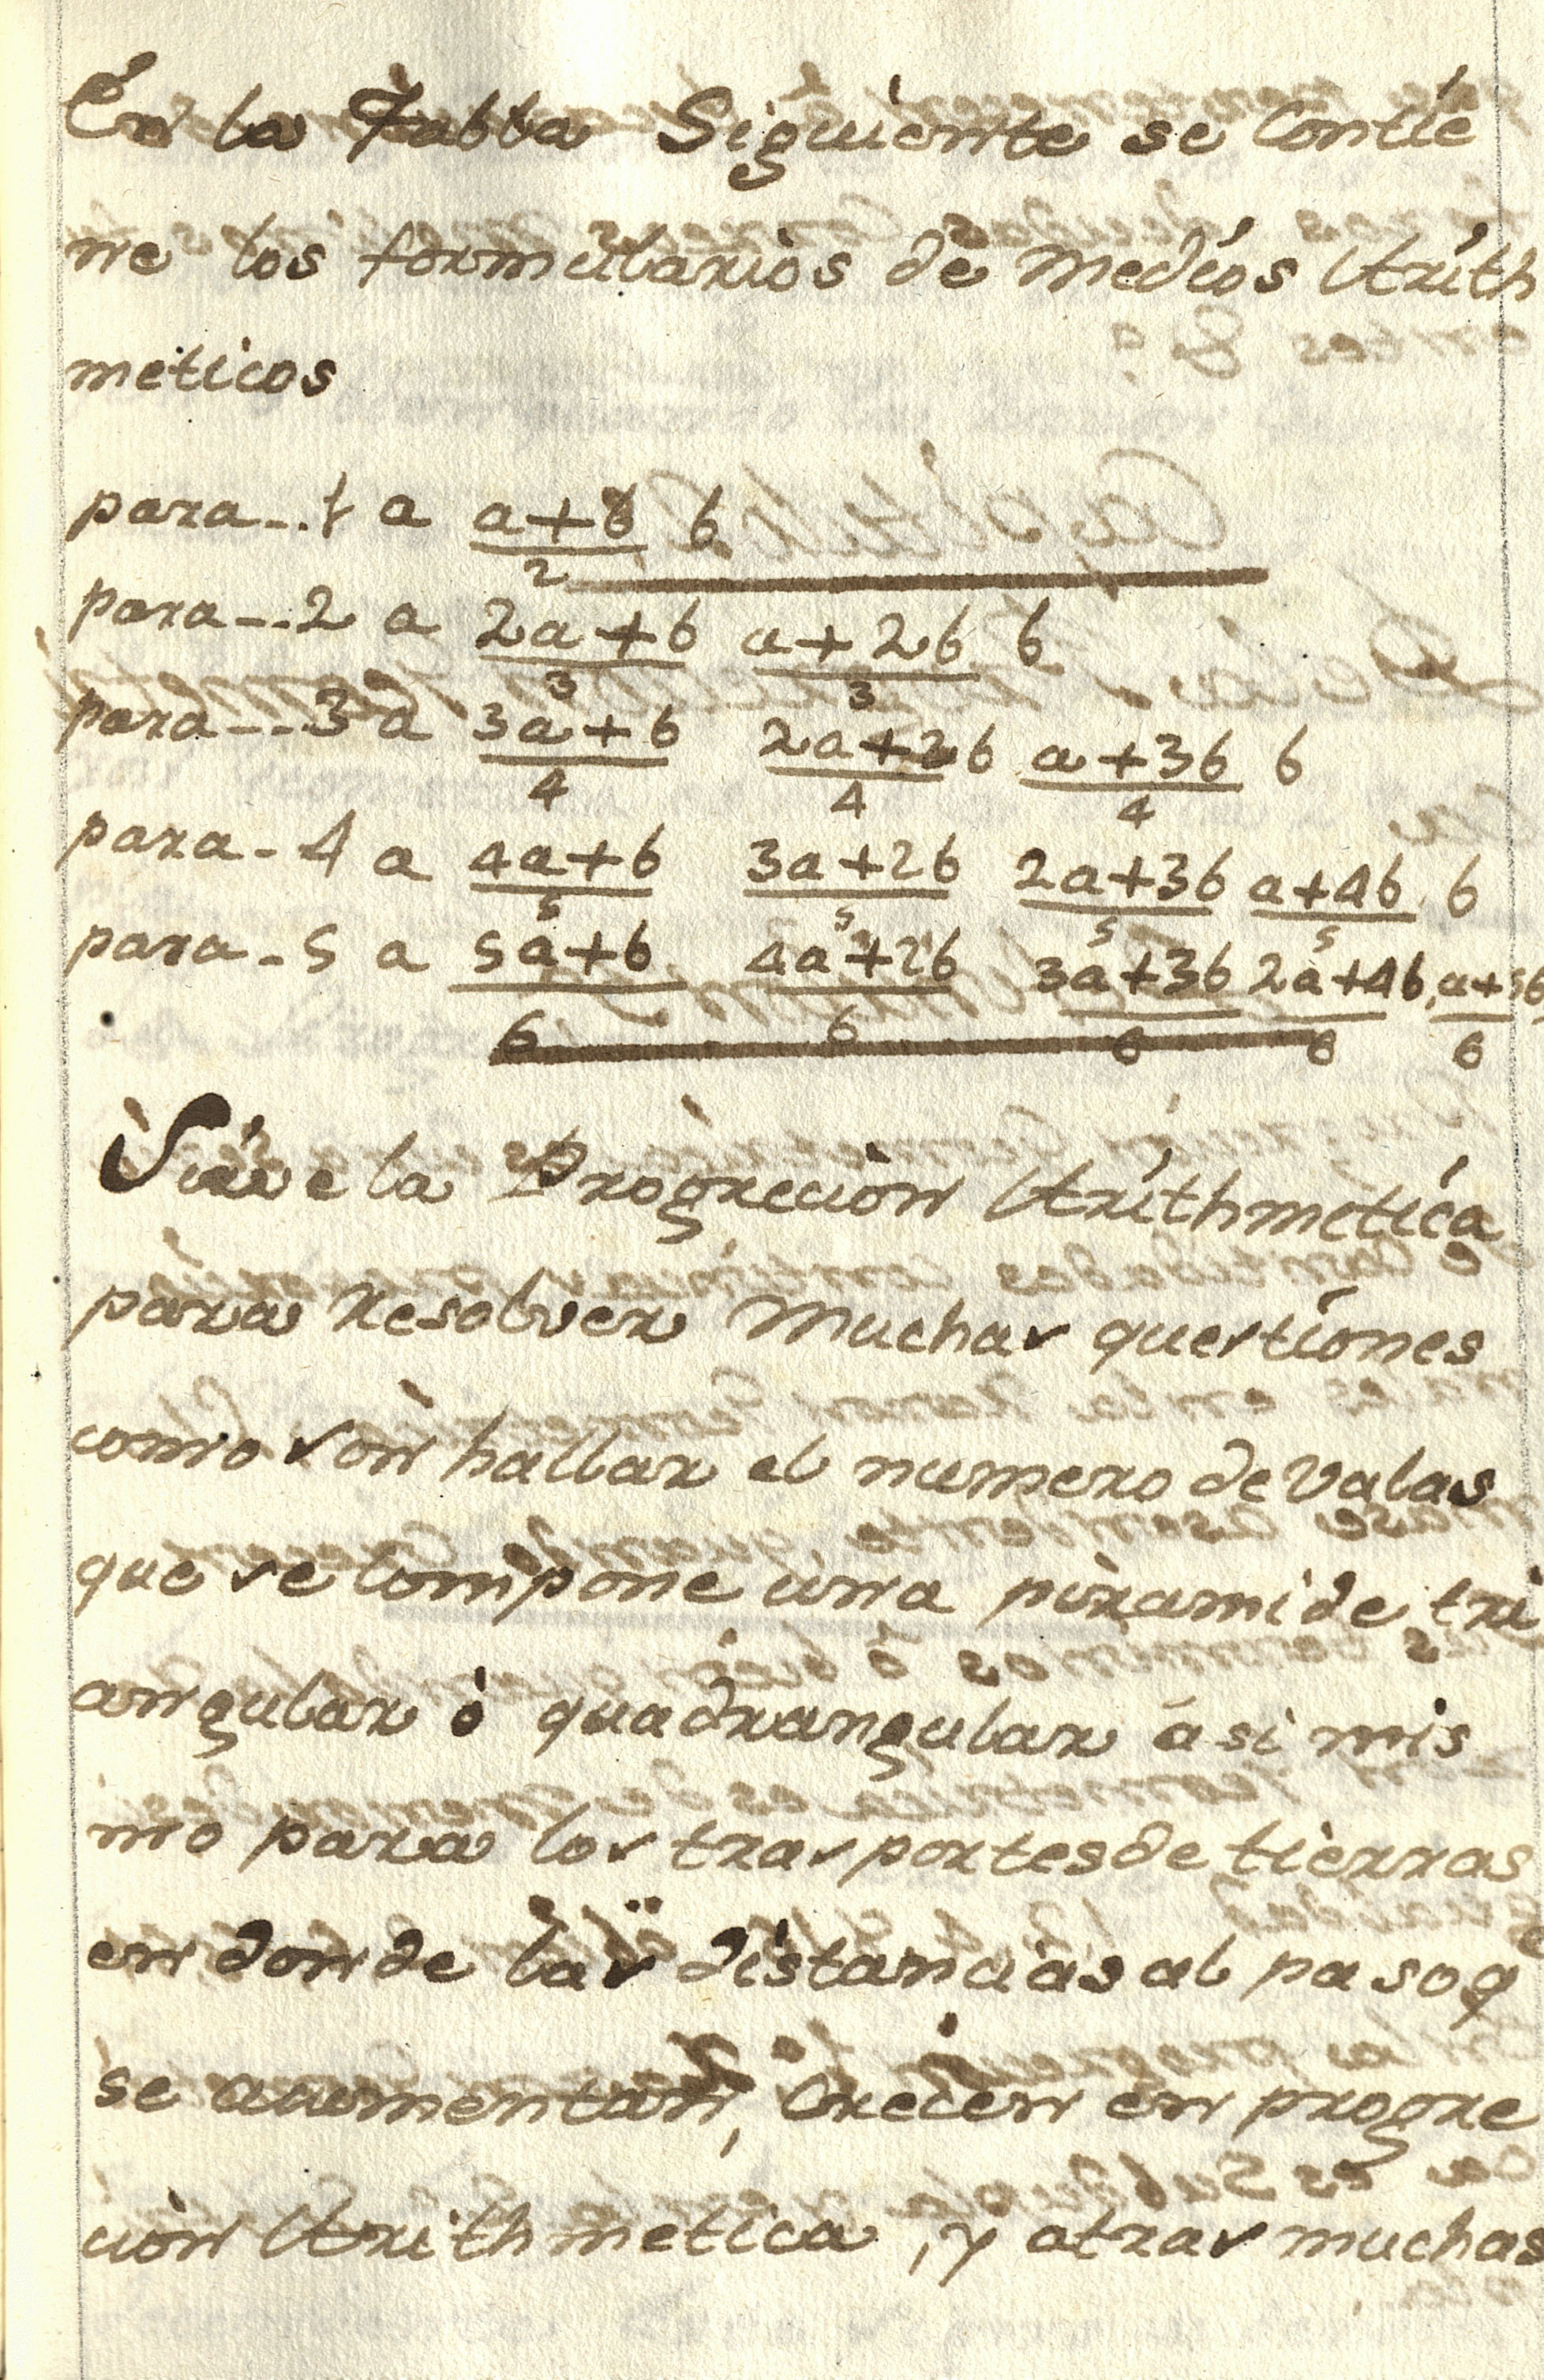 En la Tabla Siguiente se Contie
ne los formularios de Medios Arith
meticos
para-..1 a a+b b
2
para-..2 a 2a+b a+2b b
3 3
para-..3 a 3a+b 2a+2b a+3b b
4 4 4
para-4 a 4a+b 3a+2b 2a+3b a+4b b
5 5 5 5
para-5 a 5a+b 4a+2b 3a+3b 2a+4b, a+5b
6 6 6 6 6
Sirve la Progrecion Arithmetica
para resolver Muchas questiones
como son hallar el numero de Valas
que se Compone una piramide tri
angular ò quadrangular ási mis
mo para los trasportes de tierras
en donde las distancias al paso qe
se aumentan, Crecen en progre
cion Arithmetica, y otras muchas